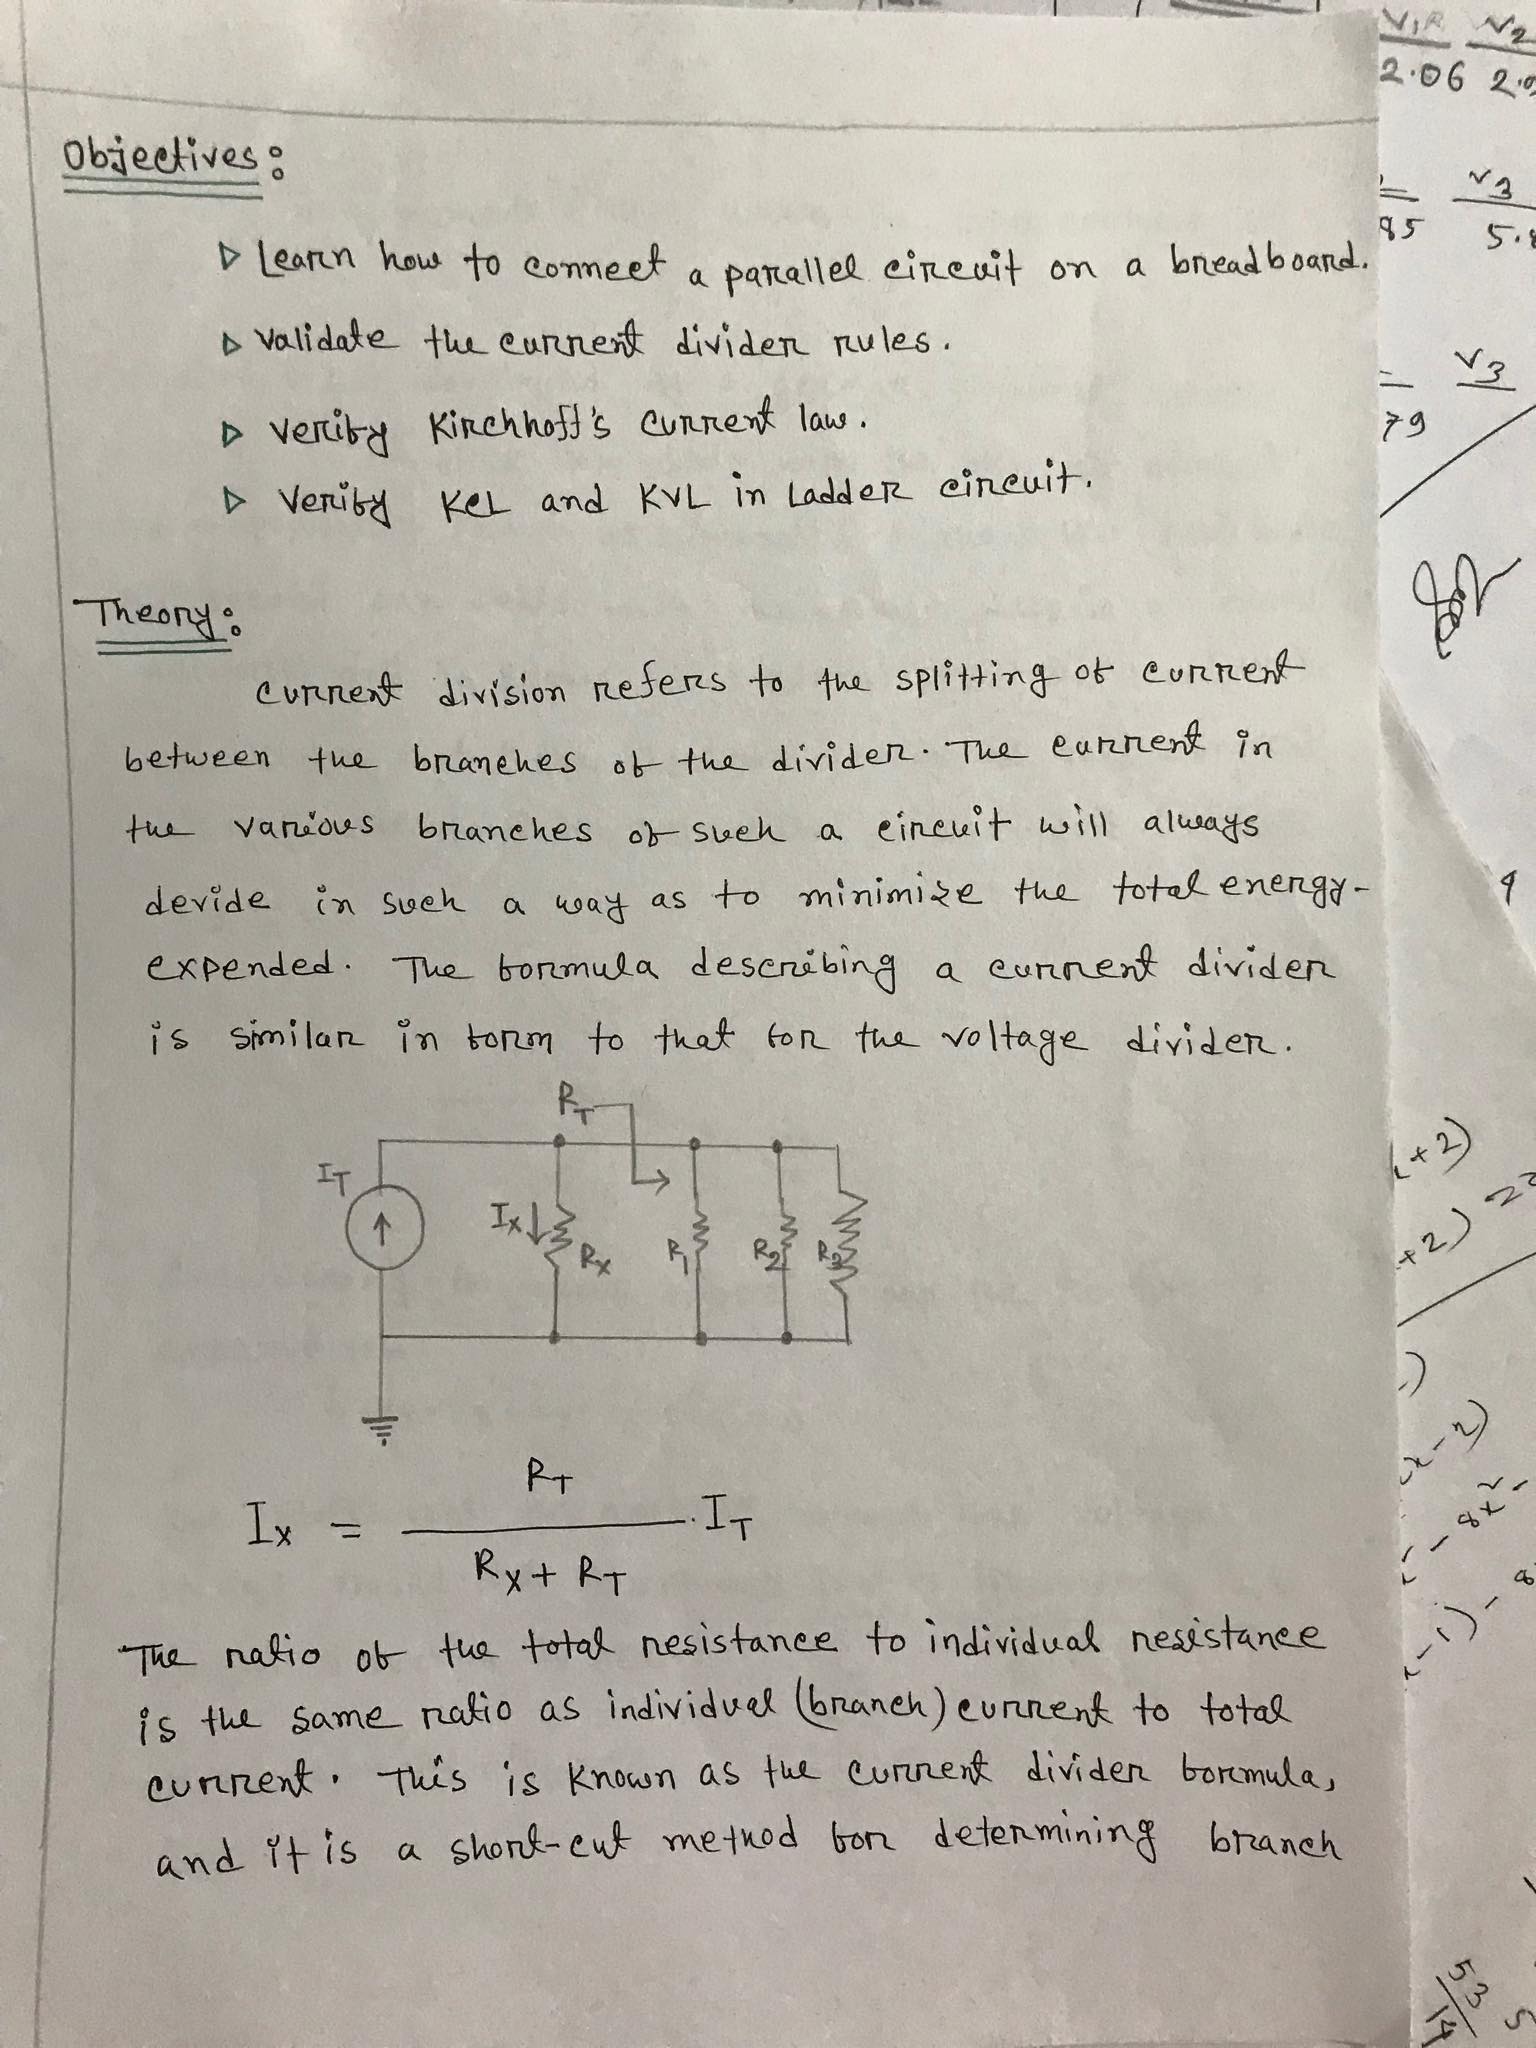 Objectives:
▷ Learn how to connect a parallel circuit on a breadboard.
▷ Validate the current divider rules.
▷ Verify Kirchhoff's current law.
▷ Verify KCL and KVL in Ladder circuit.
Theory:
Current division refers to the splitting of current
between the branches of the divider. The current in
the various branches of such a circuit will always
devide in such a way as to minimize the total energy-
expended. The formula describing a current divider
is similar in form to that for the voltage divider.
RT
IT
Ix↓
Rx R1 R2 R3
Ix = RT / (Rx + RT) . IT
The ratio of the total resistance to individual resistance
is the same ratio as individual (branch) current to total
current. This is known as the current divider formula,
and it is a short-cut method for determining branch
V1R V2
2.06
85
V3
5.
79
V3
+2)
+2)
x-2)
- 8x²
-1) -
53
14